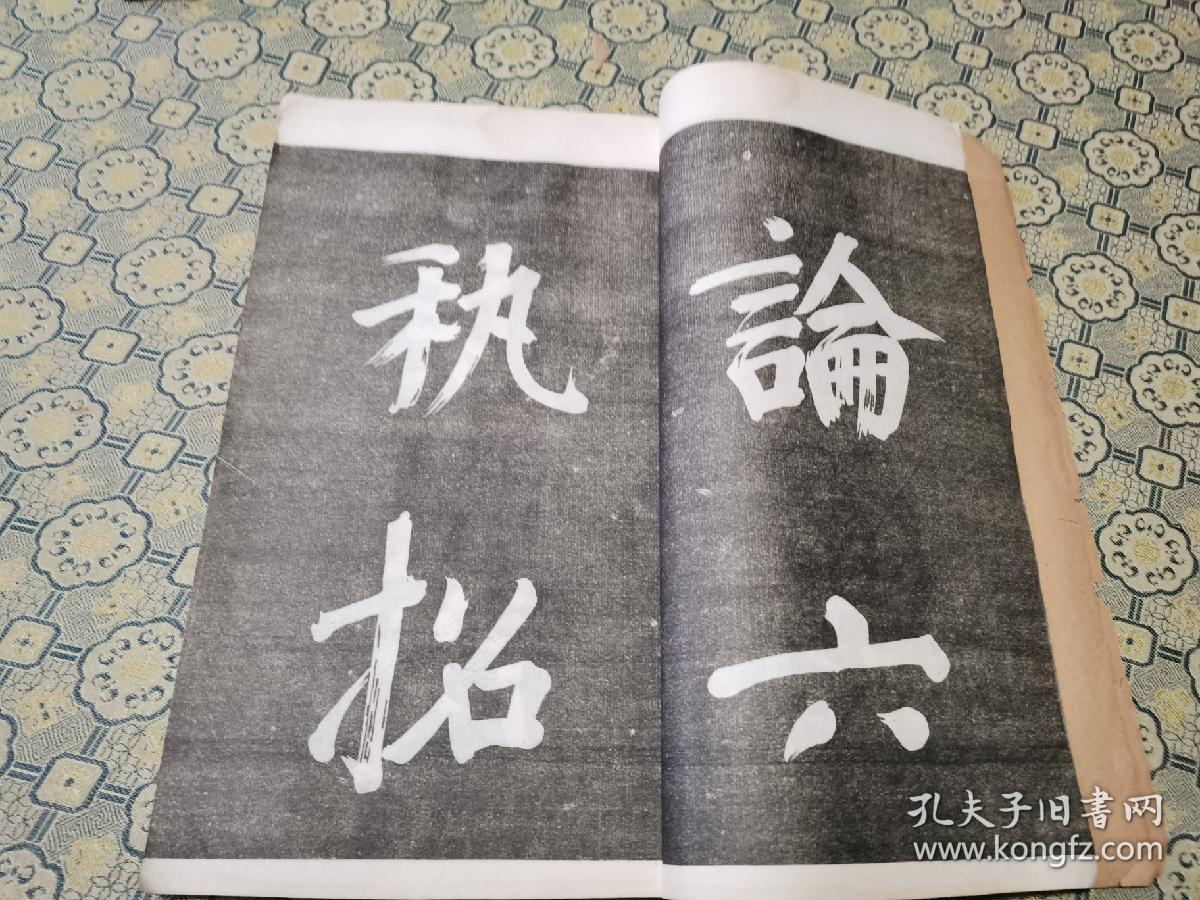 論六
秇招
孔夫子旧書网
www.kongfz.com